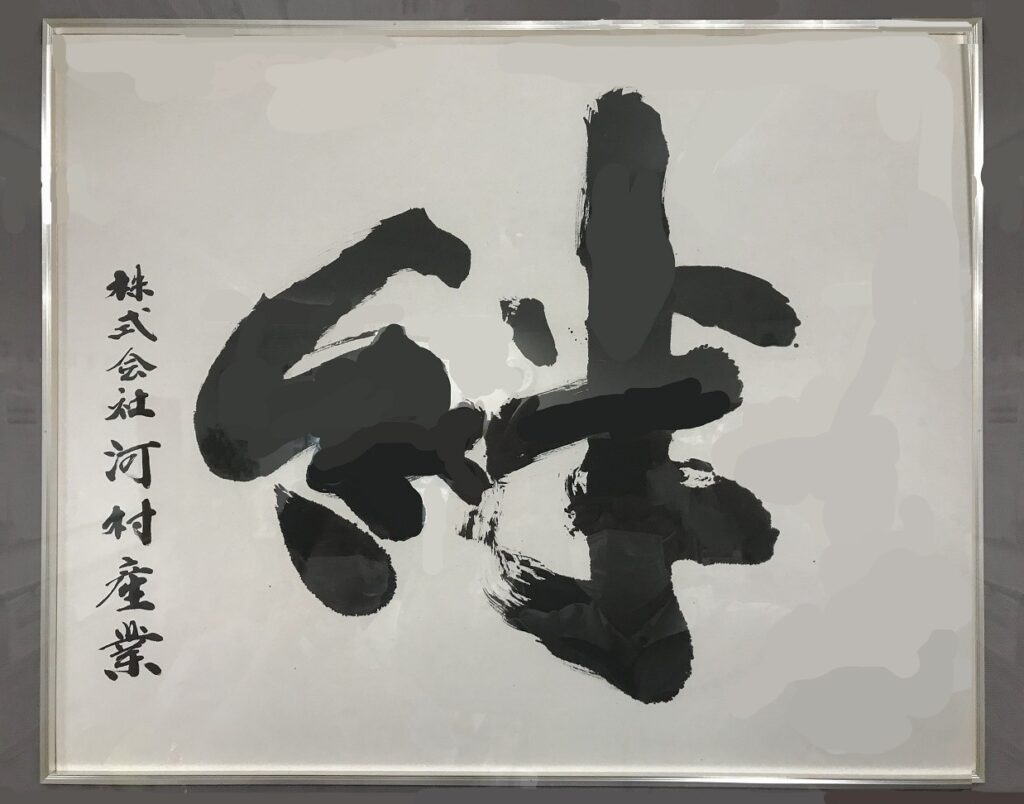 絆
株式会社河村産業